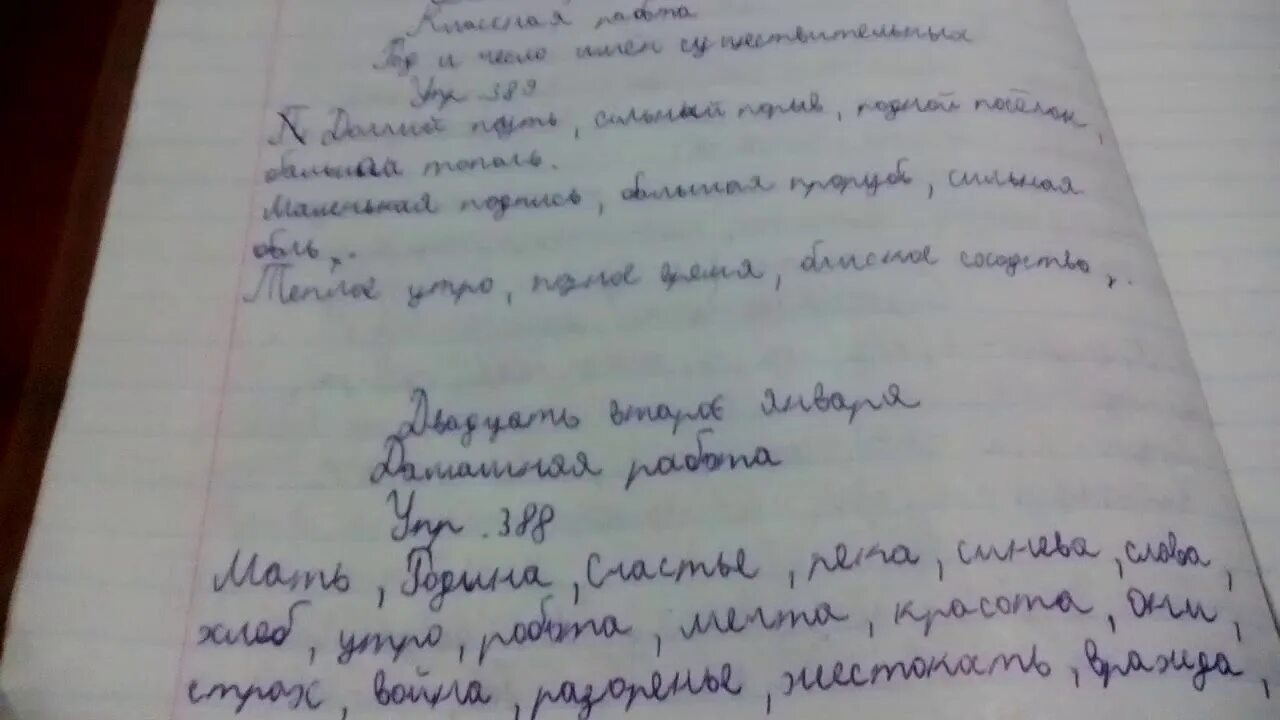 Классная работа
Род и число имен существительных
Упр 389
Долгий путь, сильный порыв, родной посёлок,
тополь.
Маленькая подпись, большая прорубь, сильная
боль,.
Теплое утро, позное время, близкое сосодство,.
Двадцать второе января
Домашняя работа
Упр. 388
Мать, Родина, Счастье, река, синева, слова,
хлеб, утро, робота, мечта, красота, они,
страх, война, разоренье, жестокасть, вражда,